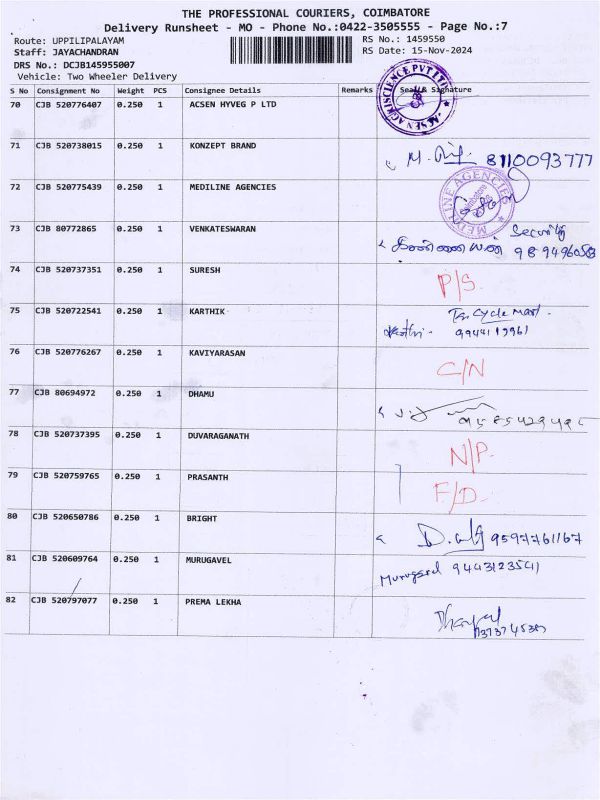 THE PROFESSIONAL COURIERS, COIMBATORE
Delivery Runsheet - MO - Phone No.:0422-3505555 - Page No.:7
Route: UPPILIPALAYAM RS No.: 1459550
Staff: JAYACHANDRAN RS Date: 15-Nov-2024
DRS No.: DCJB145955007
Vehicle: Two Wheeler Delivery
S No Consignment No Weight PCS Consignee Details Remarks Seal & Signature
70 CJB 520776407 0.250 1 ACSEN HYVEG P LTD ACSEN AGRISCIENCE PVT LTD
71 CJB 520738015 0.250 1 KONZEPT BRAND 8110093777
72 CJB 520775439 0.250 1 MEDILINE AGENCIES MEDILINE AGENCIES Coimbatore
73 CJB 80772865 0.250 1 VENKATESWARAN Security
74 CJB 520737351 0.250 1 SURESH P/S.
75 CJB 520722541 0.250 1 KARTHIK Cycle Mart.
76 CJB 520776267 0.250 1 KAVIYARASAN C/N
77 CJB 80694972 0.250 1 DHAMU
78 CJB 520737395 0.250 1 DUVARAGANATH N/P.
79 CJB 520759765 0.250 1 PRASANTH F/D.
80 CJB 520650786 0.250 1 BRIGHT 9597761167
81 CJB 520609764 0.250 1 MURUGAVEL Murugavel 9443123541
82 CJB 520797077 0.250 1 PREMA LEKHA